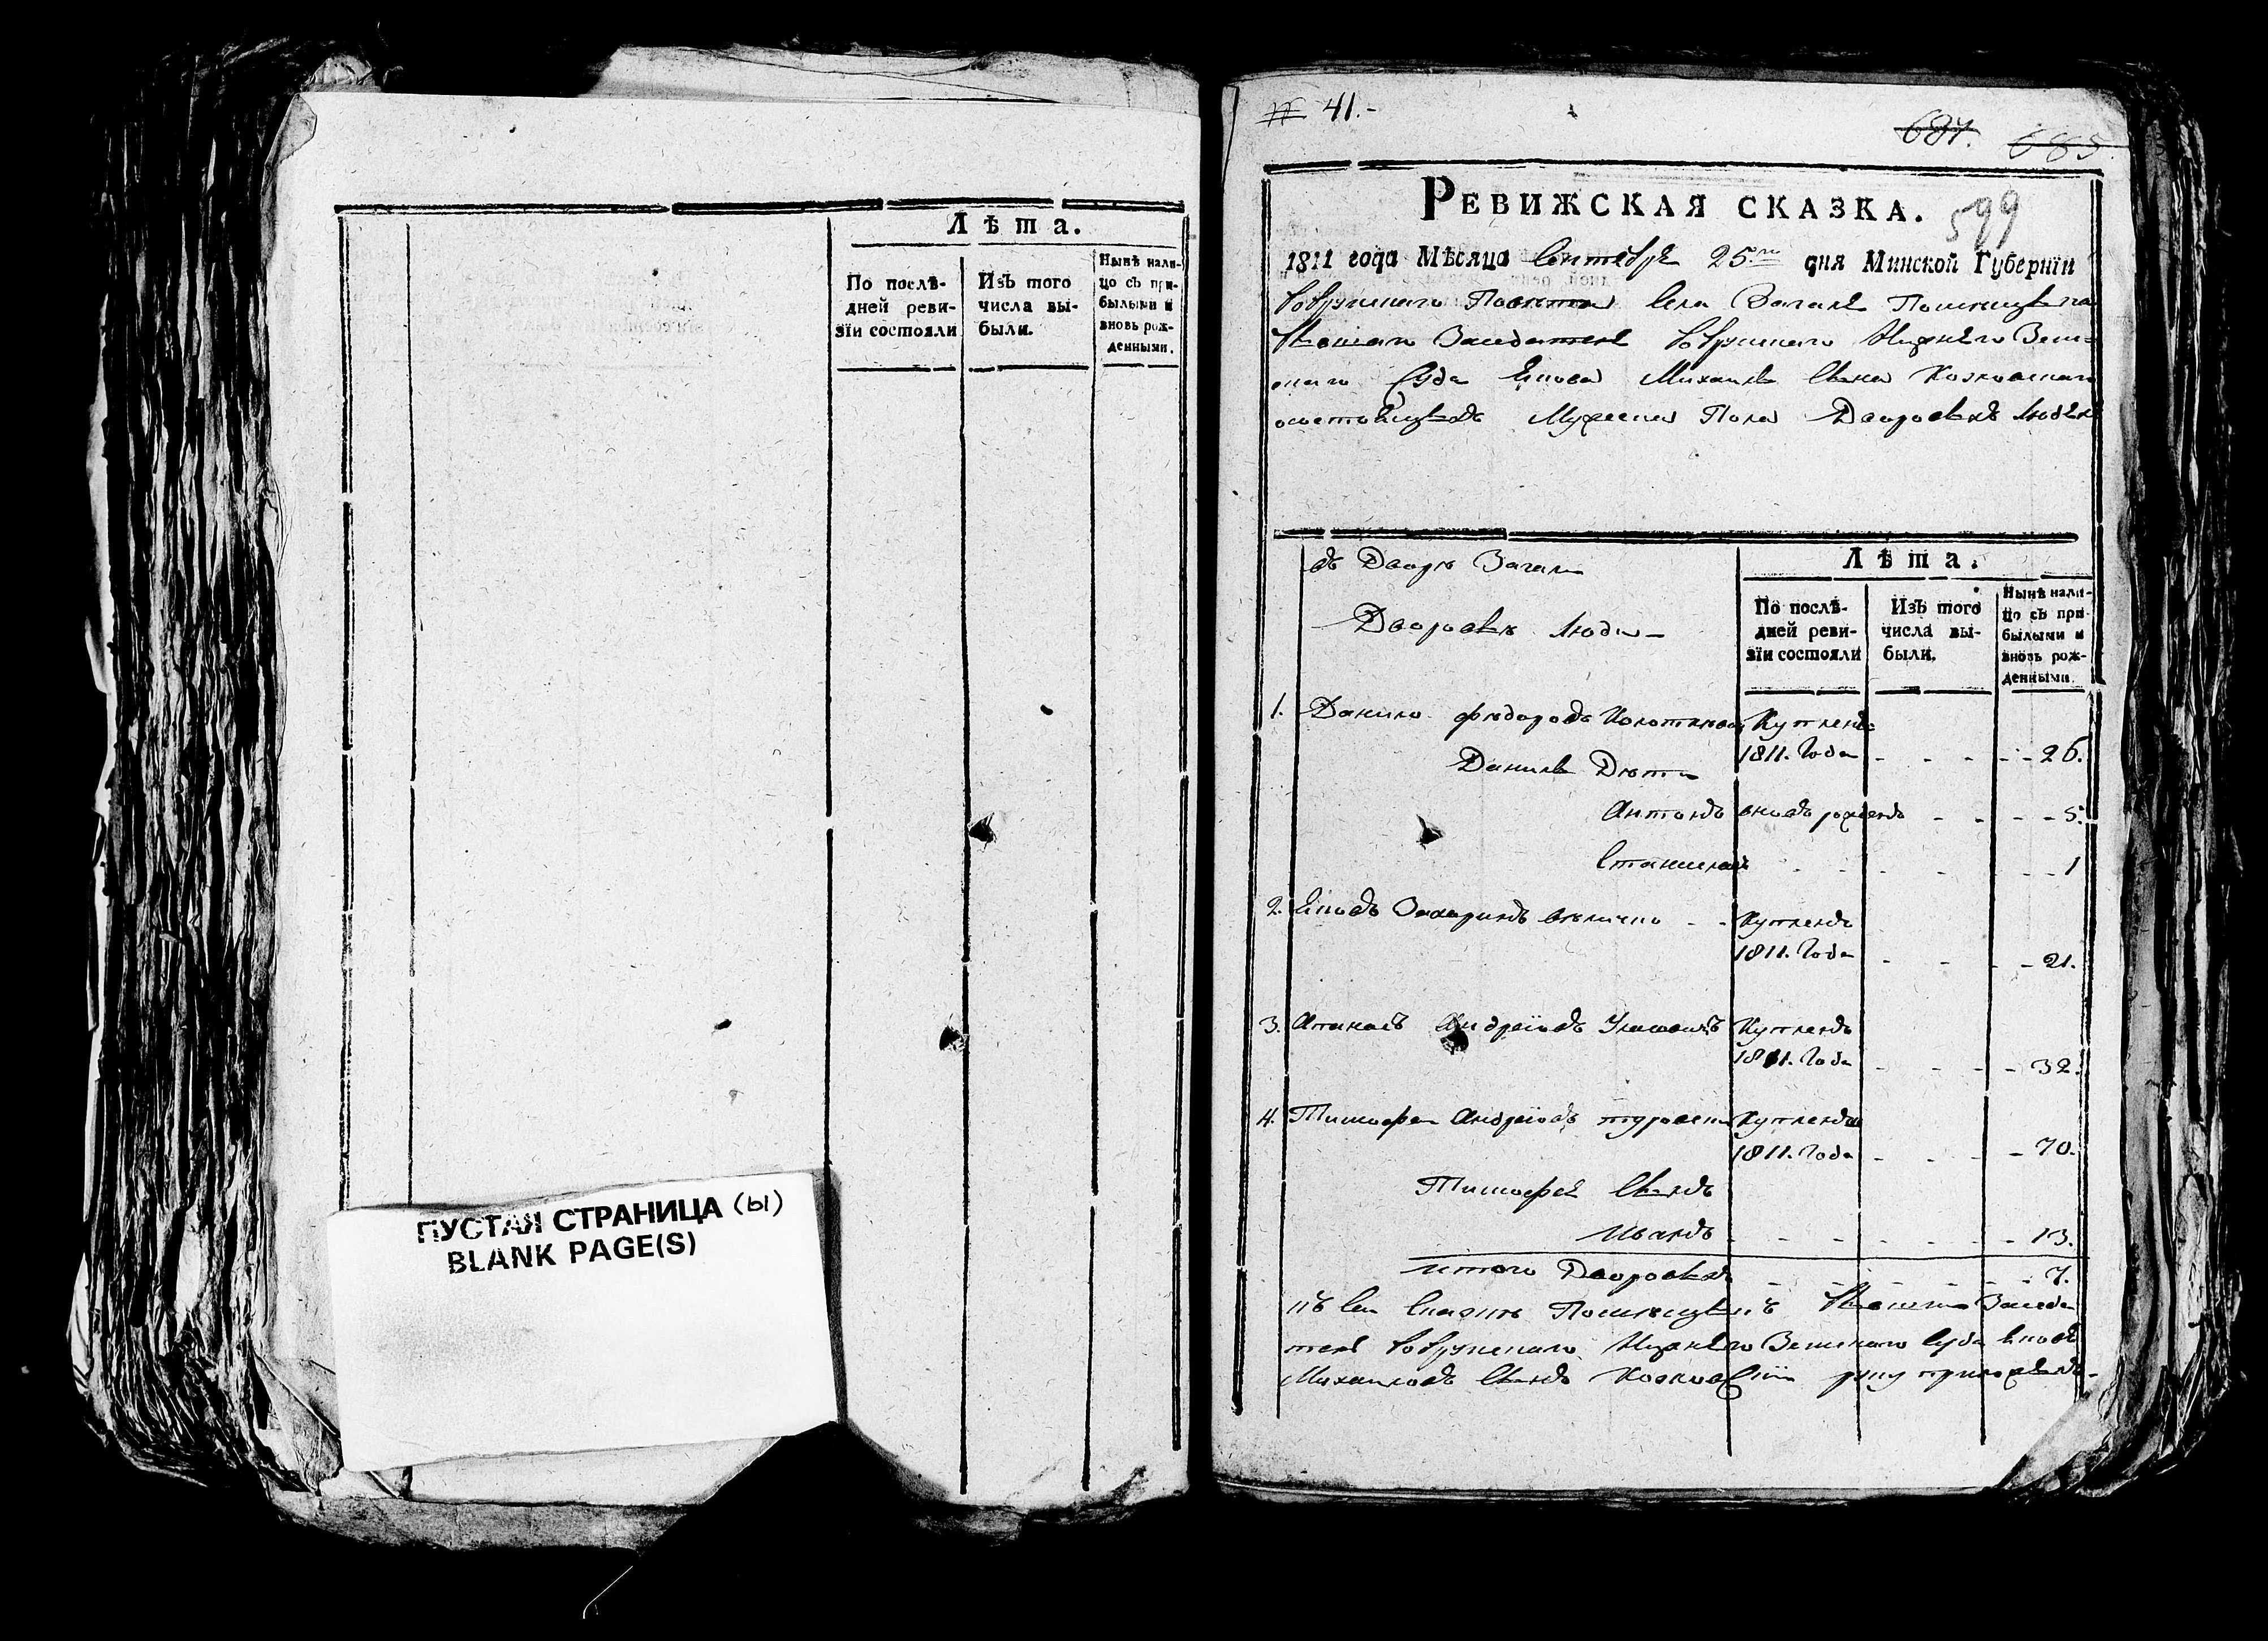 Лѣта.
По послѣ-
дней реви-
зїи состояли
Изъ того
числа вы-
были.
Нынѣ нали-
цо съ при-
былыми и
вновь рож-
денными.
ПУСТАЯ СТРАНИЦА (ы)
BLANK PAGE(S)
№ 41.-
684. 685.
РЕВИЖСКАЯ СКАЗКА.
599
1811 года Мѣсяца Сентября 25го дня Минской Губернїи
Повѣта Села Загаля
Засѣдателя Нижнего Зем-
скаго Суда Михайла Сына Козловскаго
Мужеска Пола Дворовыхъ Людехъ
въ Дворѣ Загалѣ
Дворовые Люди
Лѣта.
По послѣ-
дней реви-
зїи состояли
Изъ того
числа вы-
были.
Нынѣ нали-
цо съ при-
былыми и
вновь рож-
денными.
1. Данило Федоровъ Купленъ
1811. Года - - - - 26.
Данилы Дѣти
Антонъ вновь рожденъ - - - - 5.
Станиславъ - - - - 1
2. Захаринъ - - Купленъ
1811. Года - - - - 21.
3. Апанасъ Андреіовъ Купленъ
1811. Года - - - - 32.
4. Тимофей Андреіовъ Купленъ
1811. Года - - - 70.
Тимофея Сынъ
Иванъ - - - - - - 13.
итого Дворовыхъ - - - - - 7.
къ сей Сказкѣ Засѣда
тель Нижнего Земскаго Суда
Михайловъ Сынъ Козловскій руку приложилъ.